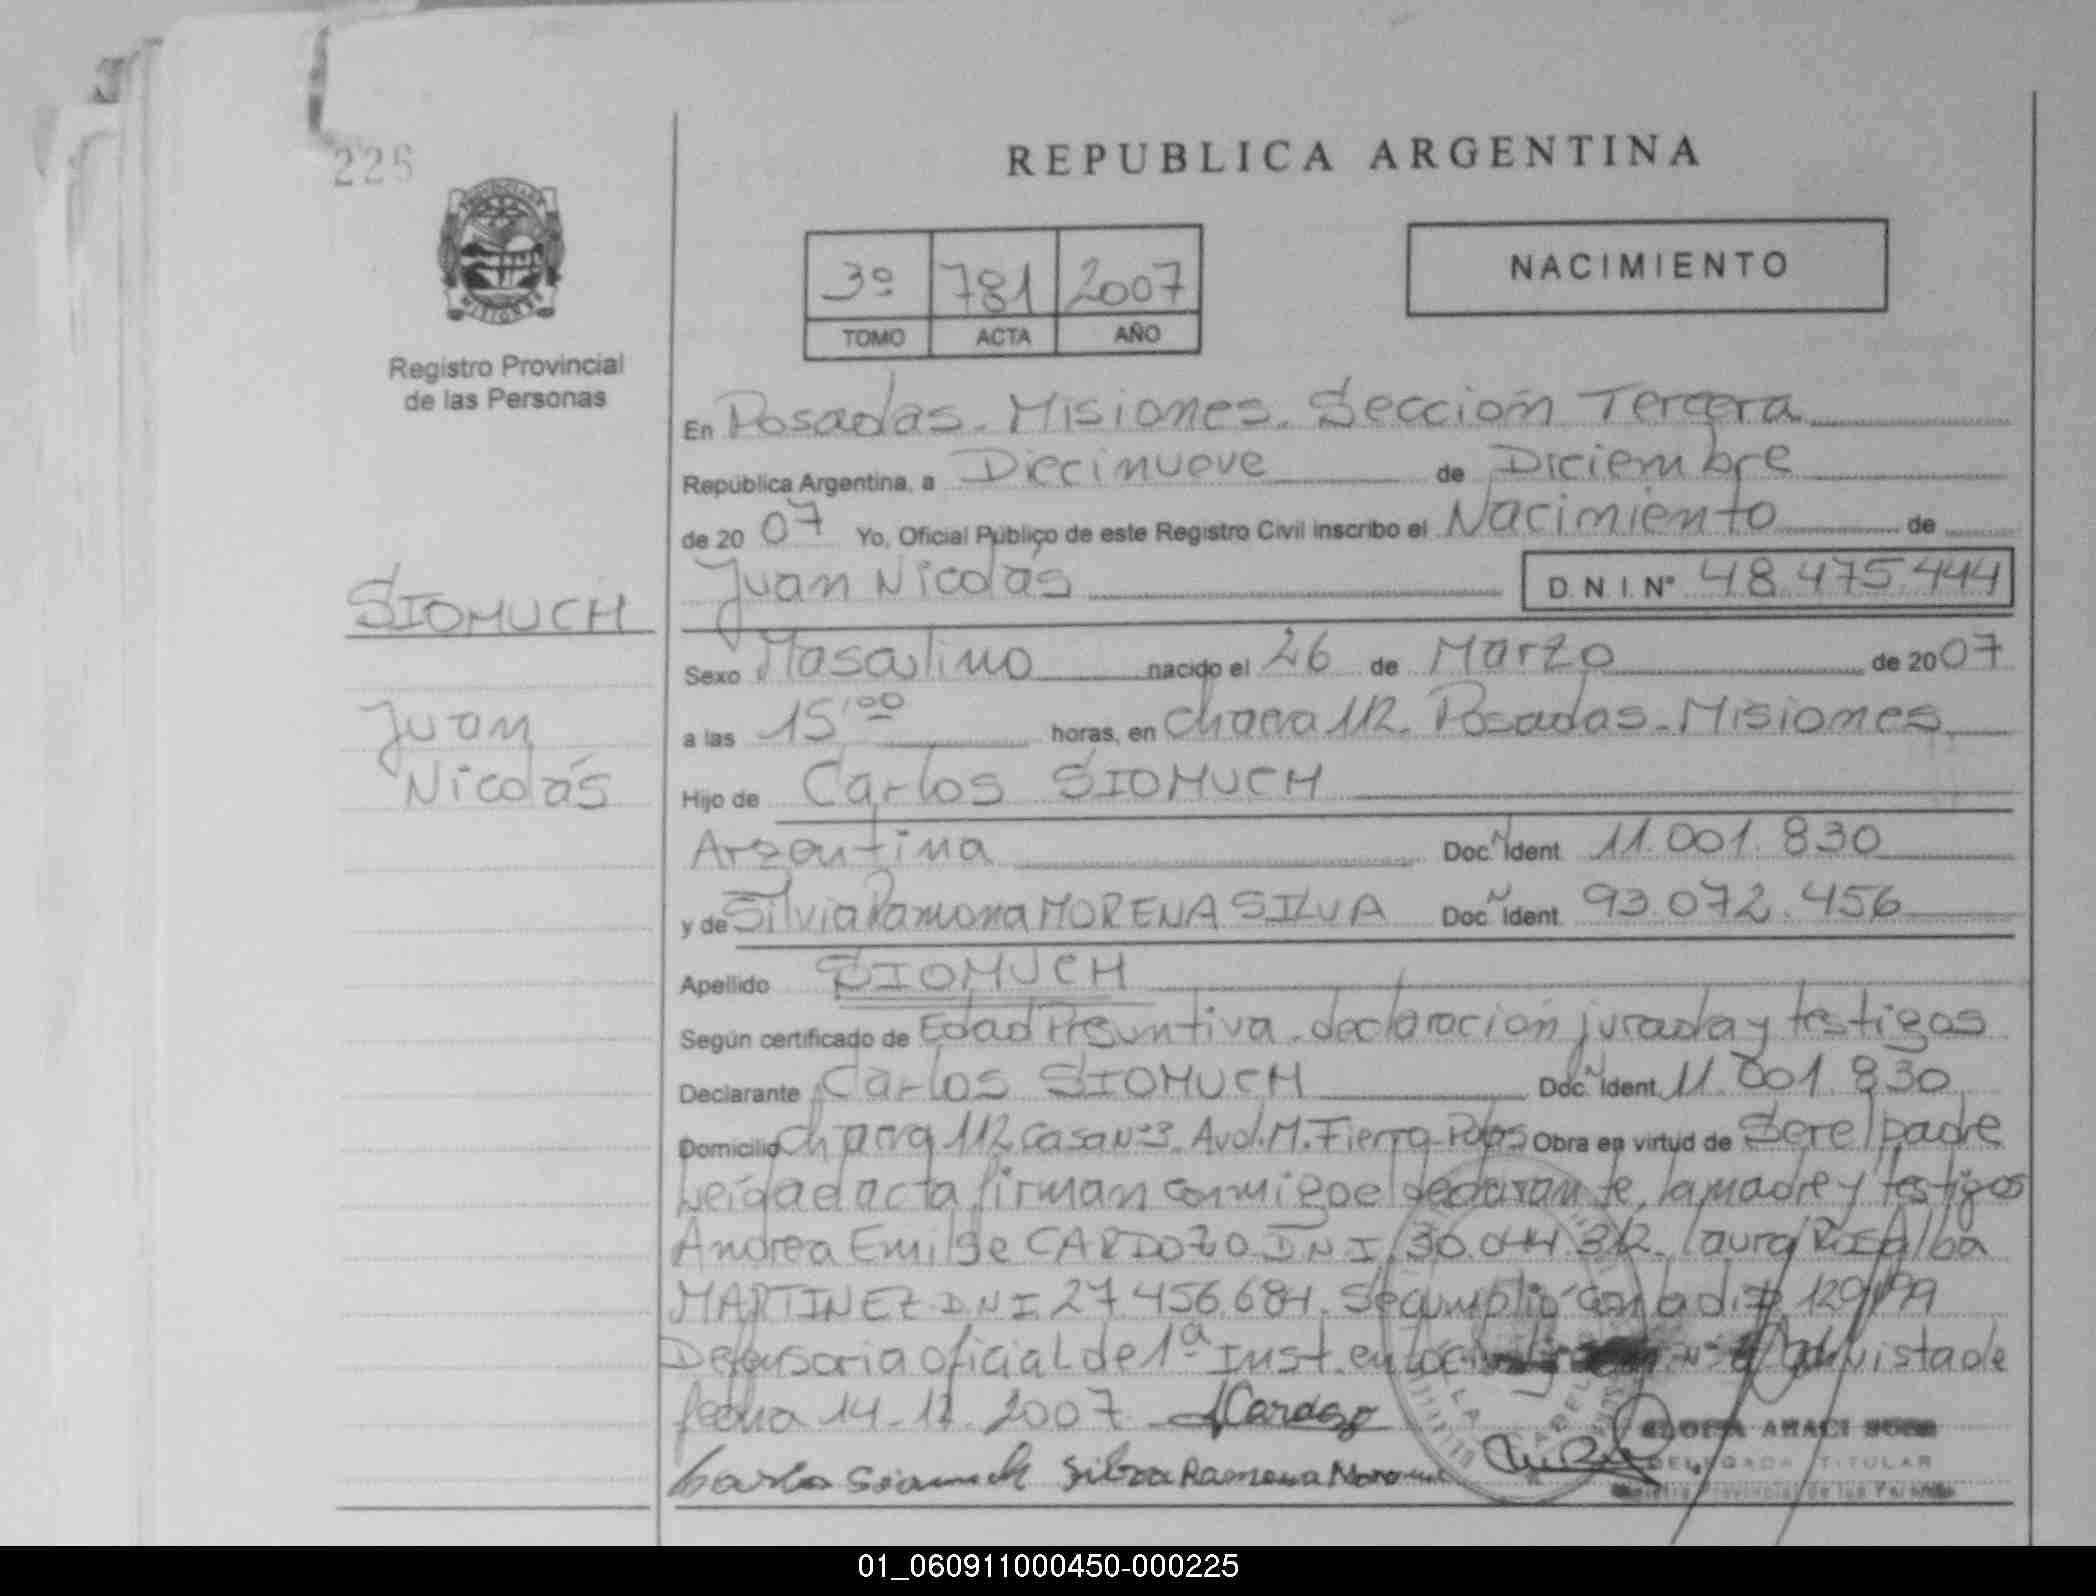 226
REPUBLICA ARGENTINA
PROVINCIA DE
MISIONES
Registro Provincial
de las Personas
3º 781 2007
TOMO ACTA AÑO
NACIMIENTO
En Posadas - Misiones. Sección Tercera
República Argentina, a Diecinueve de Diciembre
de 20 07 Yo, Oficial Público de este Registro Civil inscribo el Nacimiento de
Juan Nicolás D.N.I. Nº 48.475.444
SIOMUCH
Juan
Nicolás
Sexo Masculino nacido el 26 de Marzo de 2007
a las 15'00 horas, en Chacra 112. Posadas - Misiones
Hijo de Carlos SIOMUCH
Argentina Doc. Ident. 11.001.830
y de Silvia Ramona MORENA SILVA Doc. Ident. 93.072.456
Apellido SIOMUCH
Según certificado de Edad Presuntiva. declaración jurada y testigos
Declarante Carlos SIOMUCH Doc. Ident. 11.001.830
Domicilio Chacra 112 Casa Nº 3. Avd. M. Fierro - Pdas Obra en virtud de Ser el padre
Leída el acta firman conmigo el declarante, la madre y testigos
Andrea Emilse CARDOZO D.N.I. 30.044.312. Laura Rosalba
MARTINEZ D.N.I. 27.456.684. Se cumplió con la disp. 129/99
Defensoria oficial de 1ª Inst. en vista de
fecha 14.12.2007 ACardozo
Carlos Siomuch Silvia Ramona Morena
ARACI
DELEGADA TITULAR
Registro Provincial de las Personas
01_060911000450-000225